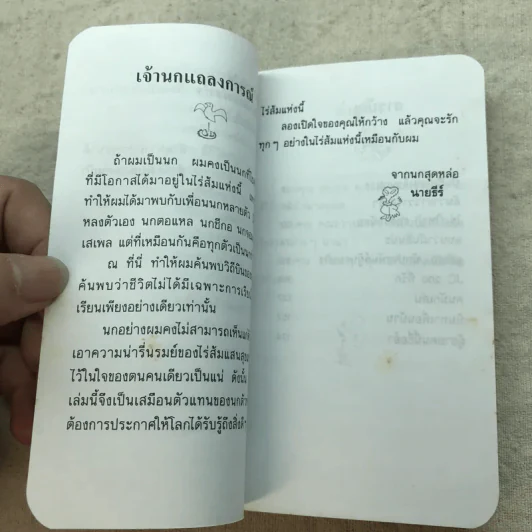 เจ้านกแถลงการณ์
ถ้าผมเป็นนก ผมคงเป็นนก
ที่มีโอกาสได้มาอยู่ในไร่ส้มแห่งนี้
ทำให้ผมได้มาพบกับเพื่อนนกหลายตัว
หลงตัวเอง นกตอแหล นกขี้กอ
เสเพล แต่ที่เหมือนกันคือทุกตัวเป็น
ณ ที่นี่ ทำให้ผมค้นพบวิถีบิน
ค้นพบว่าชีวิตไม่ได้มีเฉพาะการเรีย
เรียนเพียงอย่างเดียวเท่านั้น
นกอย่างผมคงไม่สามารถเห็น
เอาความน่ารื่นรมย์ของไร่ส้มแสนสุข
ไว้ในใจของตนคนเดียวเป็นแน่ ดังนั้น
เล่มนี้จึงเป็นเสมือนตัวแทนของนก
ต้องการประกาศให้โลกได้รับรู้ถึงสิ่ง
ไร่ส้มแห่งนี้
ลองเปิดใจของคุณให้กว้าง แล้วคุณจะรัก
ทุกๆ อย่างในไร่ส้มแห่งนี้เหมือนกับผม
จากนกสุดหล่อ
นายธีร์